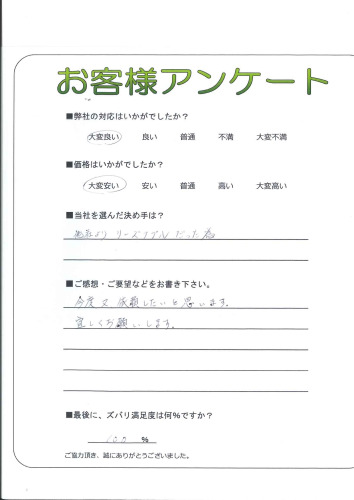 お客様アンケート
■弊社の対応はいかがでしたか？
大変良い 良い 普通 不満 大変不満
■価格はいかがでしたか？
大変安い 安い 普通 高い 大変高い
■当社を選んだ決め手は？
他社より リーズナブルだった為
■ご感想・ご要望などをお書き下さい。
今度又依頼したいと思います。
宜しくお願いします。
■最後に、ズバリ満足度は何%ですか？
100 %
ご協力頂き、誠にありがとうございました。